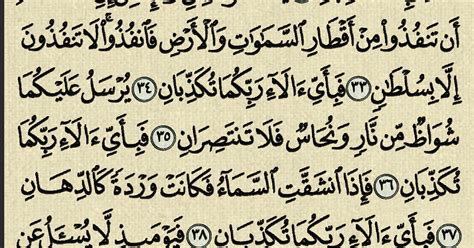 أَن تَنفُذُوا۟ مِنْ أَقْطَارِ ٱلسَّمَٰوَٰتِ وَٱلْأَرْضِ فَٱنفُذُوا۟ ۚ لَا تَنفُذُونَ
إِلَّا بِسُلْطَٰنٍ ٣٣ فَبِأَىِّ ءَالَآءِ رَبِّكُمَا تُكَذِّبَانِ ٣٤ يُرْسَلُ عَلَيْكُمَا
شُوَاظٌ مِّن نَّارٍ وَنُحَاسٌ فَلَا تَنتَصِرَانِ ٣٥ فَبِأَىِّ ءَالَآءِ رَبِّكُمَا
تُكَذِّبَانِ ٣٦ فَإِذَا ٱنشَقَّتِ ٱلسَّمَآءُ فَكَانَتْ وَرْدَةً كَٱلدِّهَانِ
٣٧ فَبِأَىِّ ءَالَآءِ رَبِّكُمَا تُكَذِّبَانِ ٣٨ فَيَوْمَئِذٍ لَّا يُسْـَٔلُ عَن